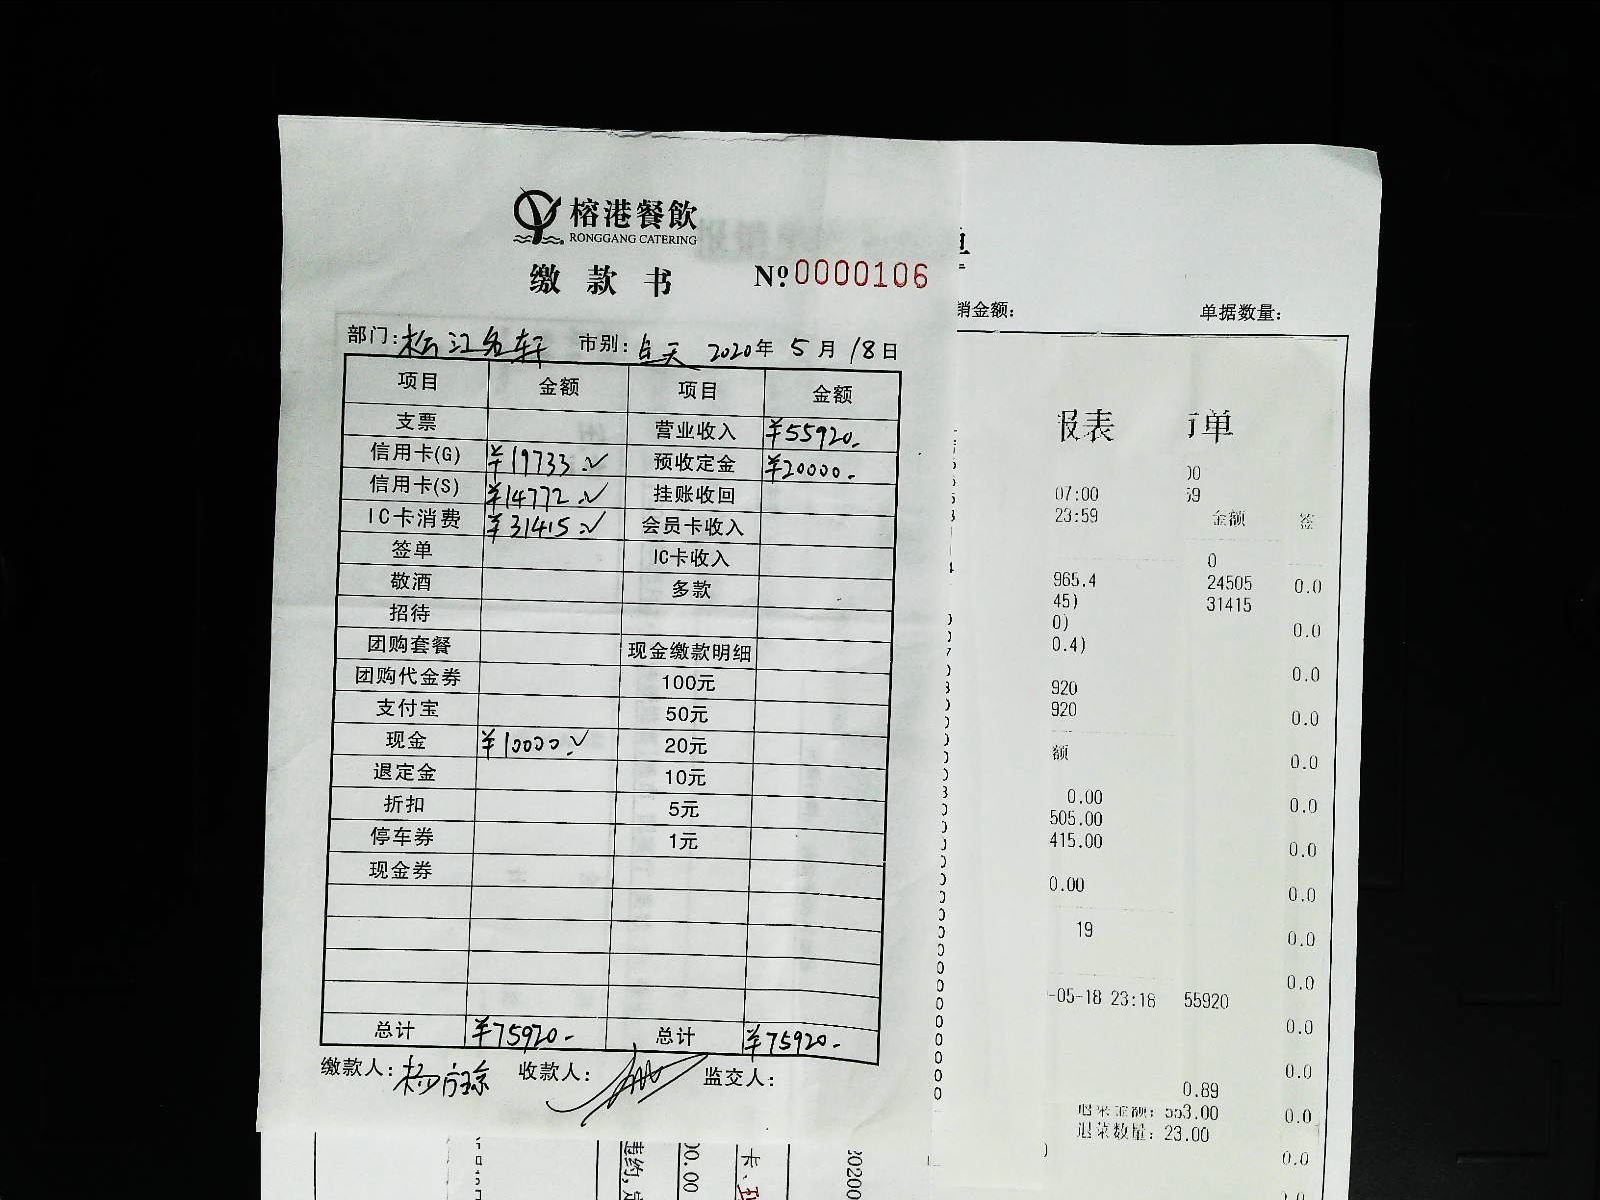 榕港餐飲
RONGGANG CATERING
缴款书 №0000106
部门:松江名轩 市别:全天 2020年5月18日
项目 金额 项目 金额
支票 营业收入 ¥55920.-
信用卡(G) ¥19733.- 预收定金 ¥20000.-
信用卡(S) ¥14772.- 挂账收回
IC卡消费 ¥31415.- 会员卡收入
签单 IC卡收入
敬酒 多款
招待
团购套餐 现金缴款明细
团购代金券 100元
支付宝 50元
现金 ¥10000.- 20元
退定金 10元
折扣 5元
停车券 1元
现金券
总计 ¥75920.- 总计 ¥75920.-
缴款人: 收款人: 监交人:
销金额: 单据数量:
报表 单
00
07:00 59
23:59 金额 签
0
965.4 24505 0.0
45) 31415
0) 0.0
0.4)
0.0
920
920 0.0
额 0.0
0.00 0.0
505.00
415.00 0.0
0.00 0.0
19 0.0
0.0
-05-18 23:18 55920
0.0
0.0
0.89
退菜金额: 553.00 0.0
退菜数量: 23.00
0.0
00.00
卡
30200